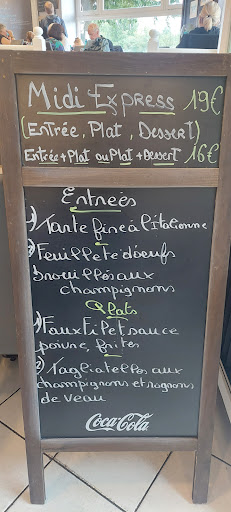 Midi Express 19€
(Entrée, Plat, Dessert)
Entrée+Plat ou Plat+Dessert 16€
Entrées
1) Tarte fine à l'italienne
2) Feuilleté d'œufs
brouillés aux
champignons
Plats
1) Faux Filet sauce
poivre, frites
2) Tagliatelles aux
champignons et rognons
de veau
Coca-Cola